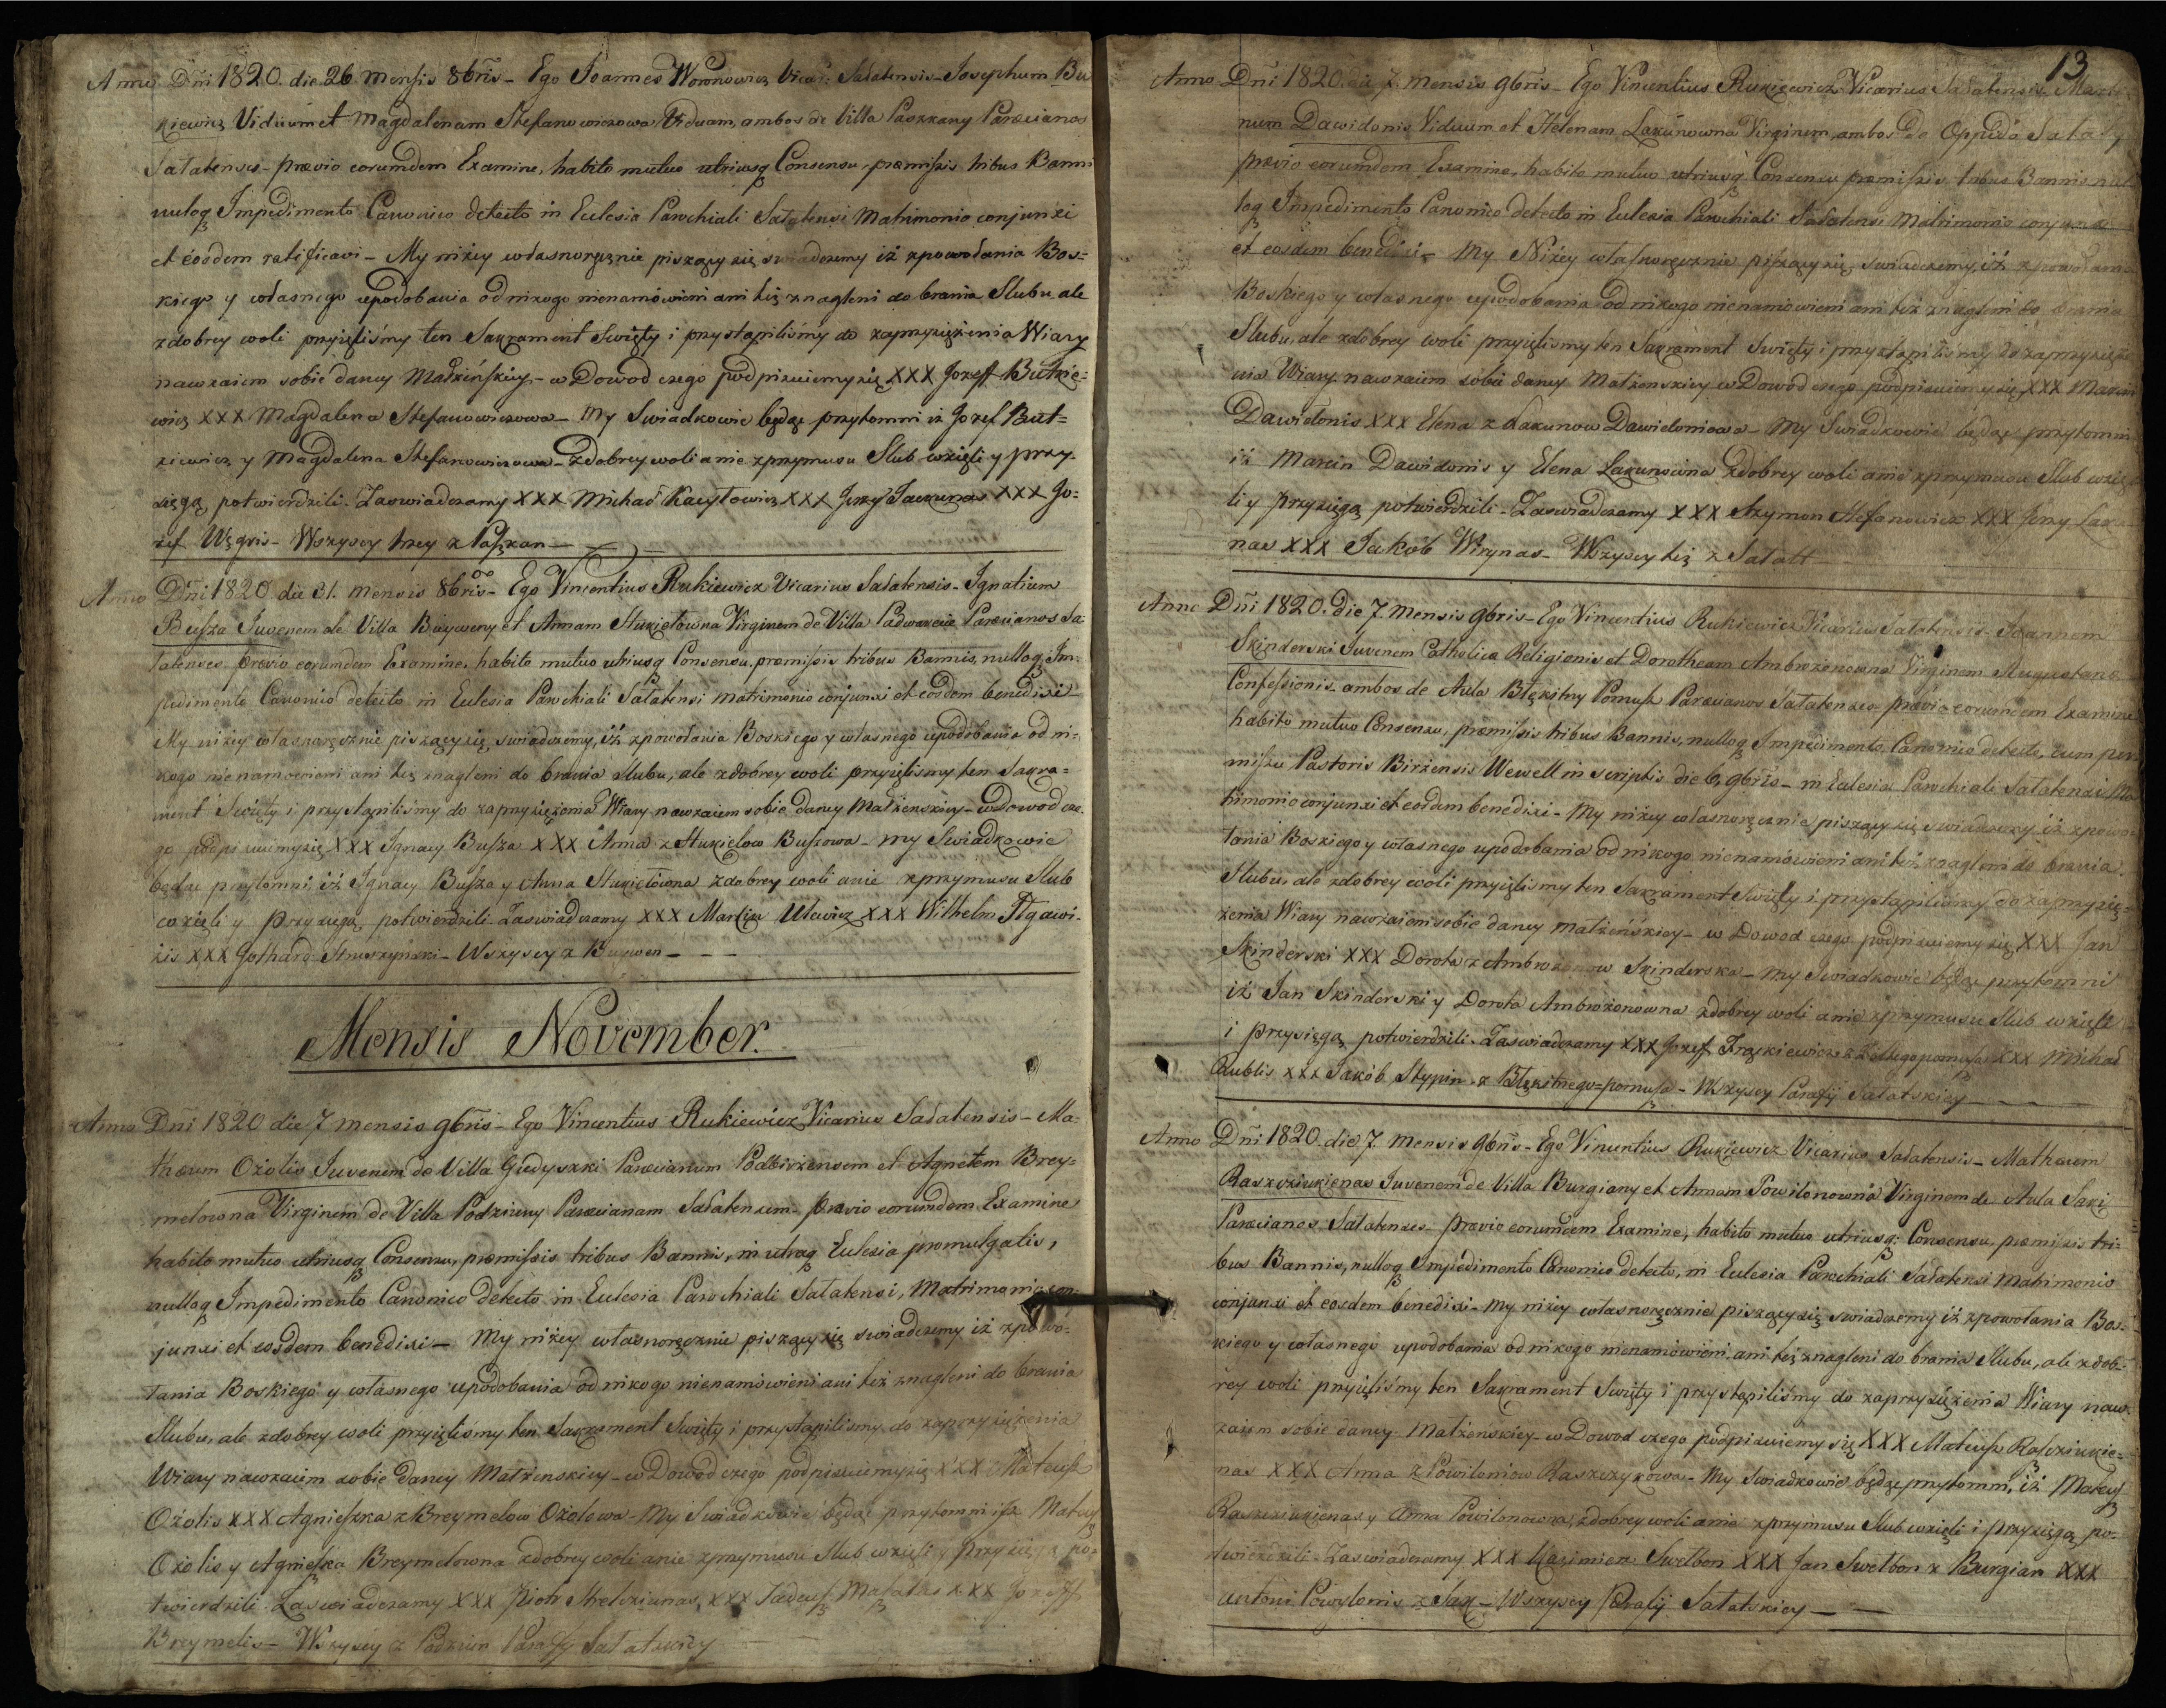 Anno Dñi 1820. die 26 Mensis 8bris - Ego Joannes Woronowicz Vicar: Sałatensis - Josephum Bu
kiewicz Viduum et Magdalenam Stefanowiczowa Viduam, ambos de Villa Paszkany Parœcianos
Sałatenses - prævio eorumdem Examine, habito mutuo utriusq Consensu, præmissis tribus Banni
nuloq Impedimento Canonico detecto in Eclesia Parochiali Sałatensi Matrimonio conjunxi
et eosdem ratificavi - My niżey własnoręcznie piszący się swiadczemy iż zpowołania Bos=
kiego y własnego upodobania od nikogo nienamówieni ani też znagleni do brania Slubu ale
zdobrey woli przyięlismy ten Sakrament Swięty i przystąpilismy do zaprzysiężenia Wiary
nawzaiem sobie daney Małżeńskiey - w Dowod czego podpisuiemy się XXX Jozeff Butkie=
wicz XXX Magdalena Stefanowiczowa - My Swiadkowie będąc przytomni iż Jozef But=
kiewicz y Magdalena Stefanowiczowa - zdobrey woli a nie zprzymusu Slub wzięli y przy
sięgą potwierdzili. Zaswiadczamy XXX Michał Kacytowicz XXX Jerzy XXX Jo=
zef Węgris - Wszyscy trzey z Paszkan
Anno Dñi 1820. die 31. Mensis 8bris - Ego Vincentius Rukiewicz Vicarius Sałatensis - Ignatium
Busza Juvenem de Villa Buyweny et Annam Stukiełowna Virginem de Villa Parœcianos Sa:
łatenses prævio eorumdem Examine, habito mutuo utriusq Consensu, præmissis tribus Bannis, nulloq Im=
pedimento Canonico detecto in Eclesia Parochiali Sałatensi matrimonio conjunxi et eosdem benedixi
My niżey własnoręcznie piszący się swiadczemy, iż zpowołania Boskiego y własnego upodobania od ni=
kogo nienamowieni ani też znagleni do brania slubu, ale zdobrey woli przyięlismy ten Sakra=
ment Swięty i przystąpiliśmy do zaprzysiężenia Wiary nawzaiem sobie daney Małżenskiey - w Dowod cze.
go podpisuiemy się XXX Ignacy Busza XXX Anna z Stukielow Buszowa - My Swiadkowie
będąc przytomni iż Ignacy Busza y Anna Stukiełowna zdobrey woli anie zprzymusu Slub
wzięli y przysięgą potwierdzili. Zaswiadczamy XXX Marcin XXX Wilhelm
XXX Gothard - Wszyscy z Buywen
Mensis November.
Anno Dñi 1820 die 7 mensis 9bris - Ego Vincentius Rukiewicz Vicarius Sałatensis - Ma=
thæum Ożolis Juvenem de Villa Giedyszki Parœcianum Podbirżensem et Agnetem Brey=
melowna Virginem de Villa Podziuny Parœcianam Sałatensem - prævio eorumdem Examine
habito mutuo utriusq Consensu, præmissis tribus Bannis, in utraq Eclesia promulgatis,
nulloq Impedimento Canonico detecto in Eclesia Parochiali Sałatensi, Matrimonio con=
junxi et eosdem benedixi - My niżey własnoręcznie piszący się swiadczemy iż zpowo=
łania Boskiego y własnego upodobania od nikogo nienamówieni ani też znagleni do brania
Slubu, ale zdobrey woli przyięliśmy ten Sakrament Swięty i przystąpilismy do zaprzysiężenia
Wiary nawzaiem sobie daney Małżenskiey - w Dowod czego podpisuiemy się XXX Mateusz
Ożolis XXX Agnieszka z Breymelow Ożolowa - My Swiadkowie będąc przytomni isz Mateusz
Ożolis y Agnieszka Breymelowna zdobrey woli anie zprzymusu Slub wzięli y przysięgą po=
twierdzili. Zaswiadczamy XXX Piotr XXX Tadeusz XXX Jozeff
Breymelis - Wszyscy z Podziun Parafij Sałatskiey
13
Anno Dñi 1820. die 7. Mensis 9bris - Ego Vincentius Rukiewicz Vicarius Sałatensis Marti
num Dawidonis Viduum et Helenam Lakunowna Virginem, ambos de Oppido Sałaty
prævio eorumdem Examine, habito mutuo utriusq Consensu præmissis tribus Bannis nul
loq Impedimento Canonico detecto in Eclesia Parochiali Sałatensi Matrimonio conjunxi
et eosdem benedixi - My Niżey własnoręcznie piszący się swiadczemy, iż zpowołania
Boskiego y własnego upodobania od nikogo nienamówieni ani też znagleni do brania
Slubu, ale zdobrey woli przyięlismy ten Sakrament Swięty i przystąpiliśmy do zaprzysięże
nia Wiary nawzaiem sobie daney Małżenskiey w Dowod czego podpisuiemy się XXX Marcin
Dawidonis XXX Elena z Lakunow Dawidoniowa - My Swiadkowie będąc przytomni
iż Marcin Dawidonis y Elena Lakunowna zdobrey woli anie zprzymusu Slub wzię
li y przysięgą potwierdzili - Zaswiadczamy XXX Szymon Stefanowicz XXX Jerzy Laku
nas XXX Jakób Wirynas - Wszyscy też z Sałatt
Anno Dñi 1820. Die 7 Mensis 9bris - Ego Vincentius Rukiewicz Vicarius Sałatensis - Joannem
Skinderski Juvenem Catholica Religionis et Dorotheam Ambrożenowna Virginem Augustanæ
Confessionis - ambos de Aula Błękitny Pomusz Parœcianos Sałatenses prævio eorumdem Examine
habito mutuo Consensu, præmissis tribus Bannis, nulloq Impedimento Canonico detecto, cum per
missu Pastoris Birżensis Wewell in scriptis die 6, 9bris - in Eclesia Parochiali Sałatensi Ma
trimonio conjunxi et eosdem benedixi - My niżey własnoręcznie piszący się swiadczemy iż zpowo
łania Boskiego y własnego upodobania od nikogo nienamówieni ani też znagleni do brania
Slubu, ale zdobrey woli przyięlismy ten Sakrament Swięty i przystąpilismy do zaprzysię=
żenia Wiary nawzaiem sobie daney małżeńskiey - w Dowod czego podpisuiemy się XXX Jan
Skinderski XXX Dorota z Ambrożenow Skinderska - My Swiadkowie będąc przytomni
iż Jan Skinderski y Dorota Ambrożenowna zdobrey woli anie zprzymusu Slub wzięli
i przysięgą potwierdzili. Zaswiadczamy XXX Jozeff z Żołtego pomusza XXX Michał
Rublis XXX Jakób Stypin z Błękitnego=pomusza - Wszyscy Parafij Sałatskiey
Anno Dñi 1820. die 7 Mensis 9bris - Ego Vincentius Rukiewicz Vicarius Sałatensis - Mathæum
Raszcziukienas Juvenem de Villa Burgiany et Annam Powilonowna Virginem de Aula Saki
Parœcianos Sałatenses prævio eorumdem Examine, habito mutuo utriusq: Consensu, præmissis tri=
bus Bannis, nulloq Impedimento Canonico detecto, in Eclesia Parochiali Sałatensi matrimonio
conjunxi et eosdem benedixi - My niżey własnoręcznie piszący się swiadczemy iż zpowołania Bos=
kiego y własnego upodobania od nikogo nienamówieni, ani też znagleni do brania Slubu, ale zdob=
rey woli przyięliśmy ten Sakrament Swięty i przystąpiliśmy do zaprzysiężenia Wiary naw=
zaiem sobie daney Małżeńskiey - w Dowod czego podpisuiemy się XXX Mateusz Raszcziukie=
nas XXX Anna z Powiloniow - My Swiadkowie będąc przytomni, iż Mateusz
Raszcziukienas y Anna Powilonowna, zdobrey woli anie zprzymusu Slub wzięli i przysięgą po=
twierdzili - Zaswiadczamy XXX Kazimierz Swetbon XXX Jan Swetbon z Burgian XXX
Antoni Powylonis z Sak - Wszyscy Parafij Sałatskiey